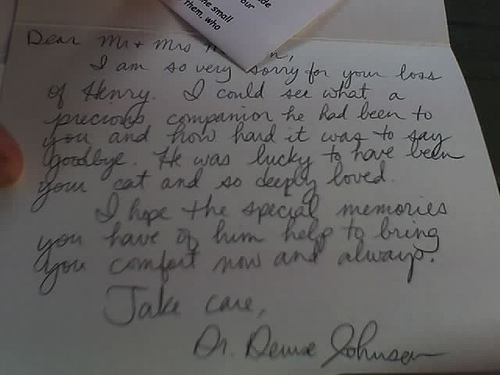 the small
them. who
our
Dear Mr + Mrs
I am so very sorry for your loss
of Henry. I could see what a
precious companion he had been to
you and how hard it was to say
goodbye. He was lucky to have been
your cat and so deeply loved.
I hope the special memories
you have of him help to bring
you comfort now and always.
Take care,
Dr. Denise Johnson